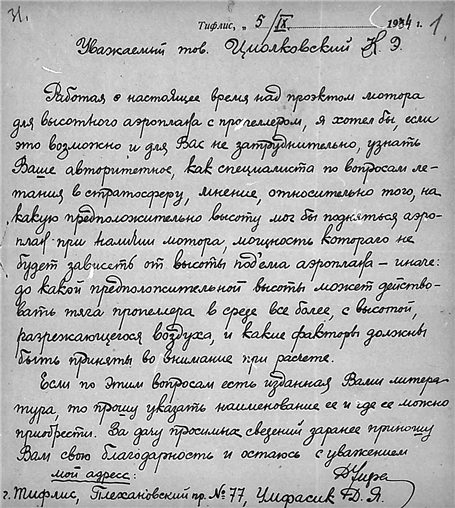 31.
Тифлис, „ 5 / IX 1934 г. 1.
Уважаемый тов. Циолковский К. Э.
Работая в настоящее время над проэктом мотора
для высотного аэроплана с прочеллером, я хотел бы, если
это возможно и для Вас не затруднительно, узнать
Ваше авторитетное, как специалиста по вопросам ле-
тания в стратосферу, мнение, относительно того, на
какую предположительно высоту мог бы подняться аэро-
план при наличии мотора, мощность котораго не
будет зависеть от высоты под'ема аэроплана – иначе:
до какой предположительной высоты может действо-
вать тяга пропеллера в среде все более, с высотой,
разрежающегося воздуха, и какие факторы должны
быть приняты во внимание при расчете.
Если по этим вопросам есть изданная Вами литера-
тура, то прошу указать наименование ее и где ее можно
приобрести. За дачу просимых сведений заранее приношу
Вам свою благодарность и остаюсь с уважением
мой адрес:
г. Тифлис, Плехановский пр. № 77, Д. Я.